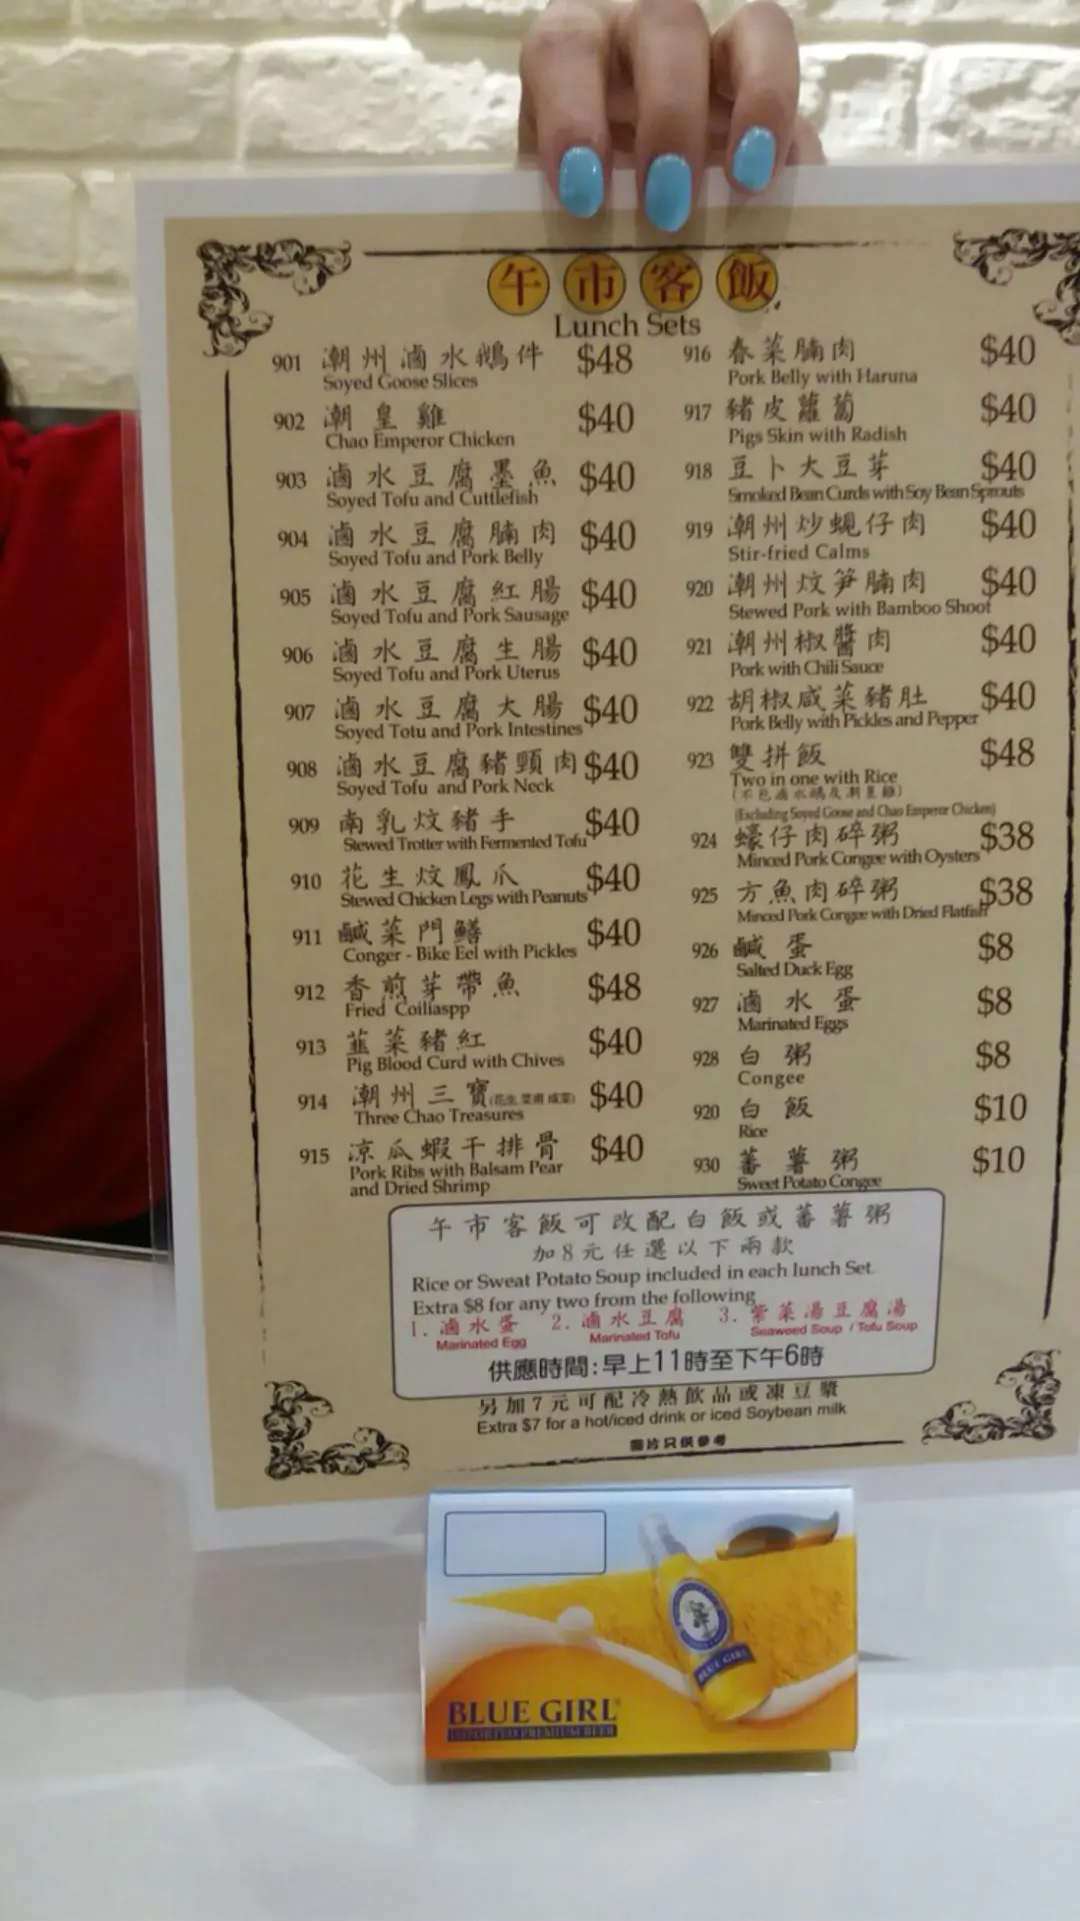 午市客飯
Lunch Sets
901 潮州滷水鵝件 $48
Soyed Goose Slices
902 潮皇雞 $40
Chao Emperor Chicken
903 滷水豆腐墨魚 $40
Soyed Tofu and Cuttlefish
904 滷水豆腐腩肉 $40
Soyed Tofu and Pork Belly
905 滷水豆腐紅腸 $40
Soyed Tofu and Pork Sausage
906 滷水豆腐生腸 $40
Soyed Tofu and Pork Uterus
907 滷水豆腐大腸 $40
Soyed Totu and Pork Intestines
908 滷水豆腐豬頸肉 $40
Soyed Tofu and Pork Neck
909 南乳炆豬手 $40
Stewed Trotter with Fermented Tofu
910 花生炆鳳爪 $40
Stewed Chicken Legs with Peanuts
911 鹹菜門鱔 $40
Conger - Bike Eel with Pickles
912 香煎芽帶魚 $48
Fried Coiliaspp
913 韮菜豬紅 $40
Pig Blood Curd with Chives
914 潮州三寶(花生 菜甫 咸菜) $40
Three Chao Treasures
915 凉瓜蝦干排骨 $40
Pork Ribs with Balsam Pear
and Dried Shrimp
916 春菜腩肉 $40
Pork Belly with Haruna
917 豬皮蘿蔔 $40
Pigs Skin with Radish
918 豆卜大豆芽 $40
Smoked Bean Curds with Soy Bean Sprouts
919 潮州炒蜆仔肉 $40
Stir-fried Calms
920 潮州炆笋腩肉 $40
Stewed Pork with Bamboo Shoot
921 潮州椒醬肉 $40
Pork with Chili Sauce
922 胡椒咸菜豬肚 $40
Pork Belly with Pickles and Pepper
923 雙拼飯 $48
Two in one with Rice
(不包滷水鵝及潮皇雞)
(Excluding Soyed Goose and Chao Emperor Chicken)
924 蠔仔肉碎粥 $38
Minced Pork Congee with Oysters
925 方魚肉碎粥 $38
Minced Pork Congee with Dried Flatfish
926 鹹蛋 $8
Salted Duck Egg
927 滷水蛋 $8
Marinated Eggs
928 白粥 $8
Congee
920 白飯 $10
Rice
930 蕃薯粥 $10
Sweet Potato Congee
午市客飯可改配白飯或蕃薯粥
加8元任選以下兩款
Rice or Sweat Potato Soup included in each lunch Set.
Extra $8 for any two from the following
1. 滷水蛋 2. 滷水豆腐 3. 紫菜湯豆腐湯
Marinated Egg Marinated Tofu Seaweed Soup / Tofu Soup
供應時間:早上11時至下午6時
另加7元可配冷熱飲品或凍豆漿
Extra $7 for a hot/iced drink or iced Soybean milk
圖片只供參考
BLUE GIRL
BLUE GIRL
IMPORTED PREMIUM BEER